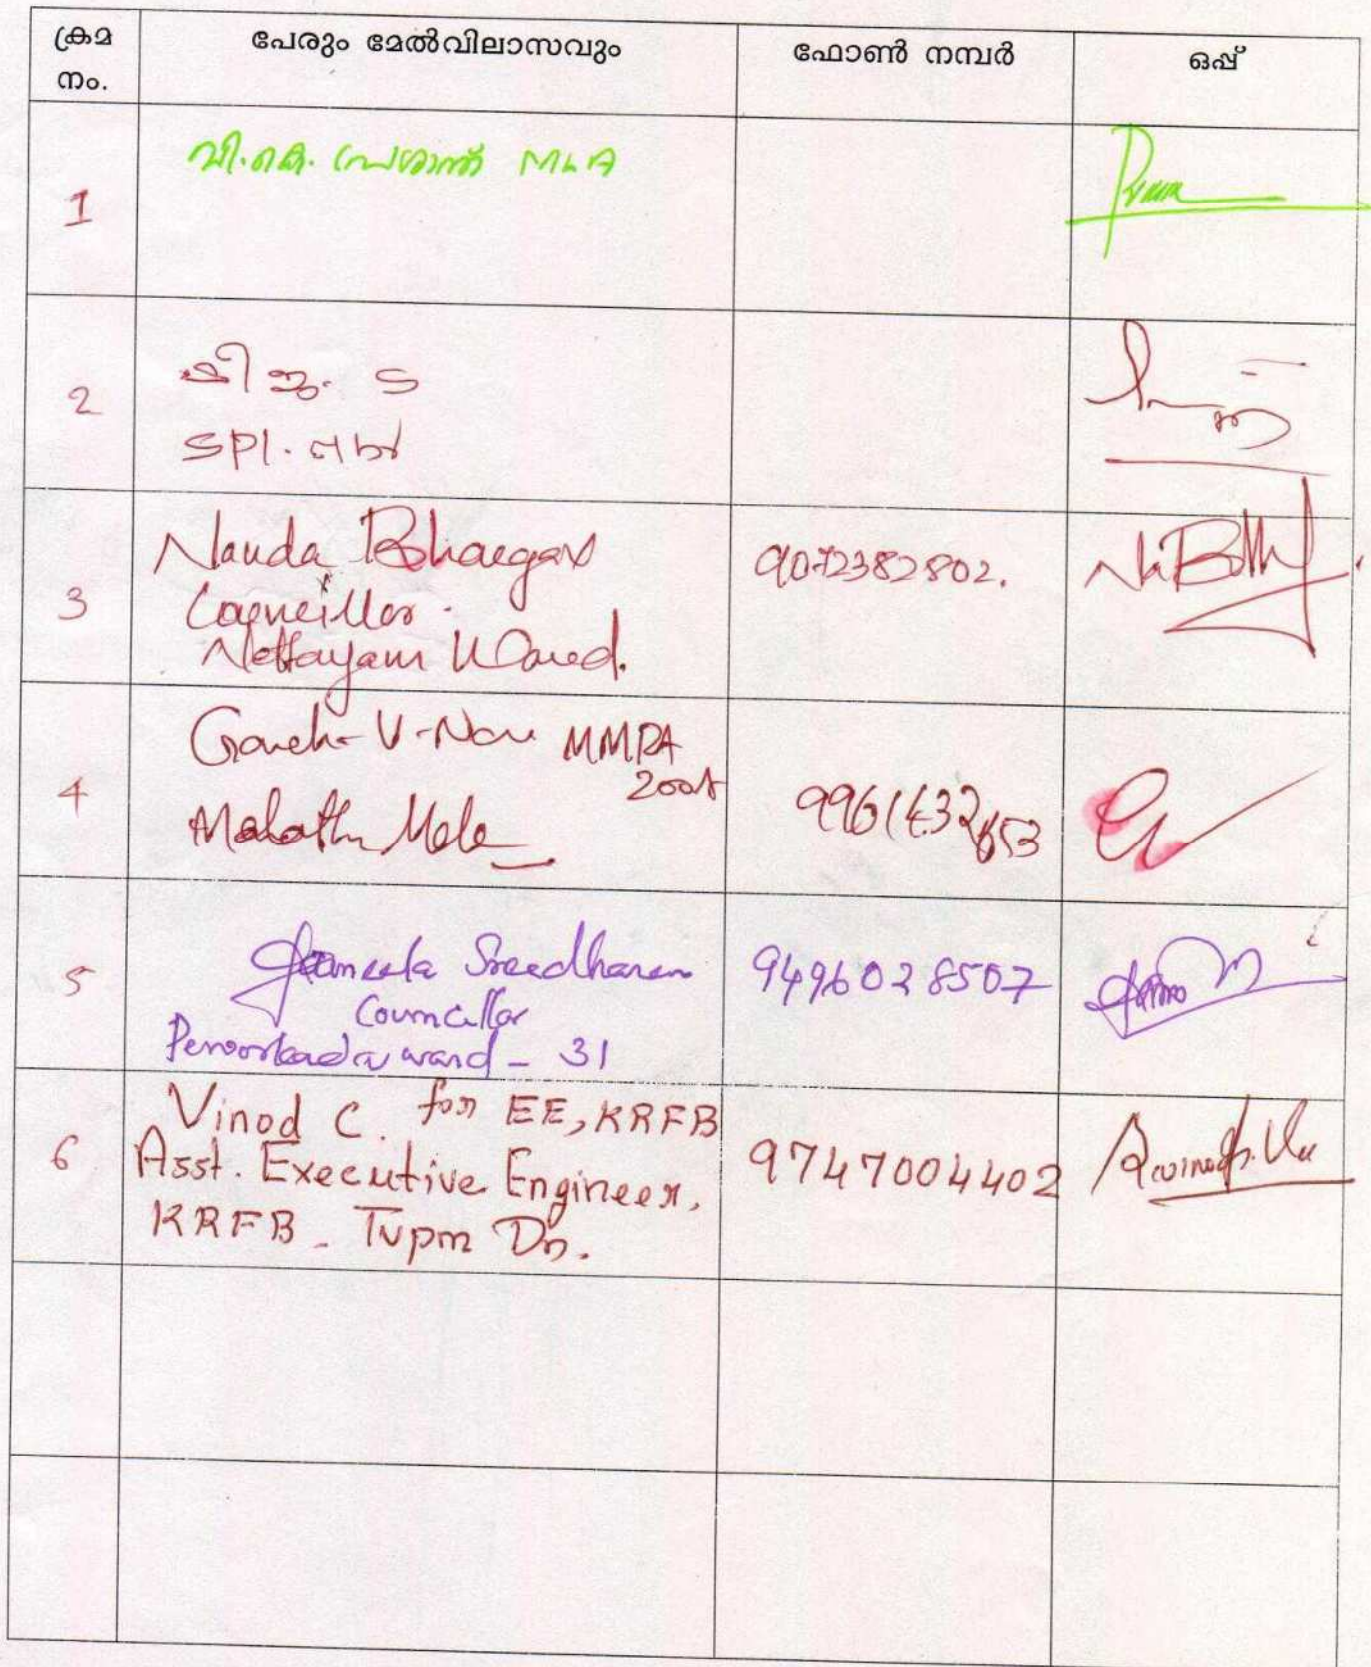 ക്രമ നം.
പേരും മേൽവിലാസവും
ഫോൺ നമ്പർ
ഒപ്പ്
1
വി.കെ. പ്രശാന്ത് MLA
2
ഷിജു. S
SPl.
3
Nanda Bhargav
Councillor.
Nettayam Ward.
9072382802.
4
V-Nair MMRA
5
Sreedharan
Councillor
Peroorkada ward - 31
9496028507
6
Vinod C. for EE, KRFB
Asst. Executive Engineer,
KRFB - Tvpm Dn.
9747004402